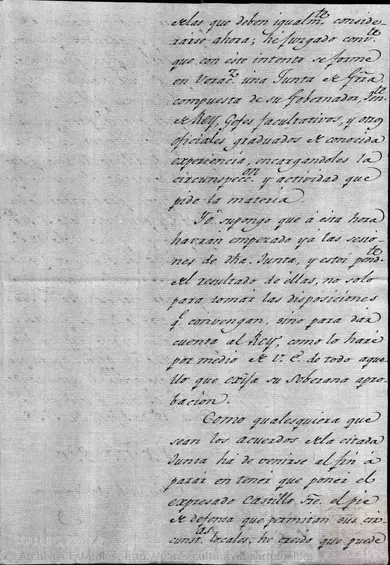 de las que deben igualm.te conside-
rarse ahora; he juzgado conv.te
que con este intento se forme
en Verac.z una Junta de Grra
compuesta de su Gobernador,
de Rey, Gefes facultativos, y otros
oficiales graduados de conocida
experiencia, encargandoles la
circunspecc.on y actividad que
pide la materia.
Yo supongo que á esta hora
havran empezado yá las sesio-
nes de dha. Junta, y estoi pend.te
del resultado de ellas, no solo
para tomar las disposiciones
q.e convengan, sino para dar
cuenta al Rey, como lo haré
por medio de V.E. de todo aque-
llo que exija su Soberana apro-
bacion.
Como qualesquiera que
sean los acuerdos de la citada
Junta ha de venirse al fin á
parar en tener que poner el
expresado Castillo en el pie
de defensa que permitan sus cir-
cunst.as locales; he creido que puede